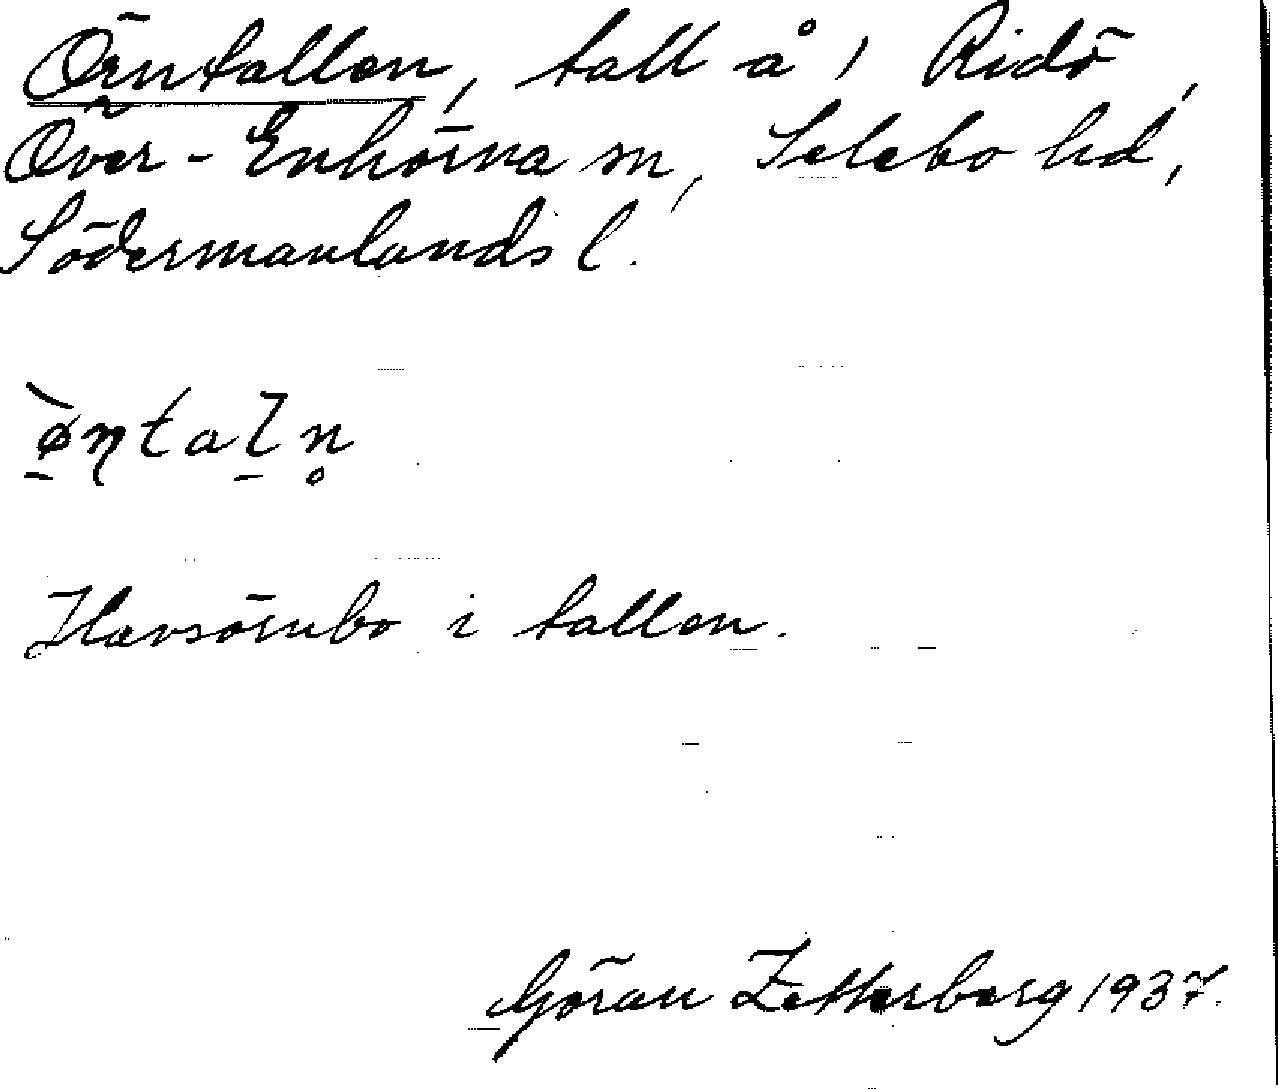 Örntallen, tall å, Ridö,
Över-Enhörna sn, Selebo hd,
Södermanlands l.
ø̱̀ɳtaḻn̥
Havsörnbo i tallen.
Göran Zetterberg 1937.